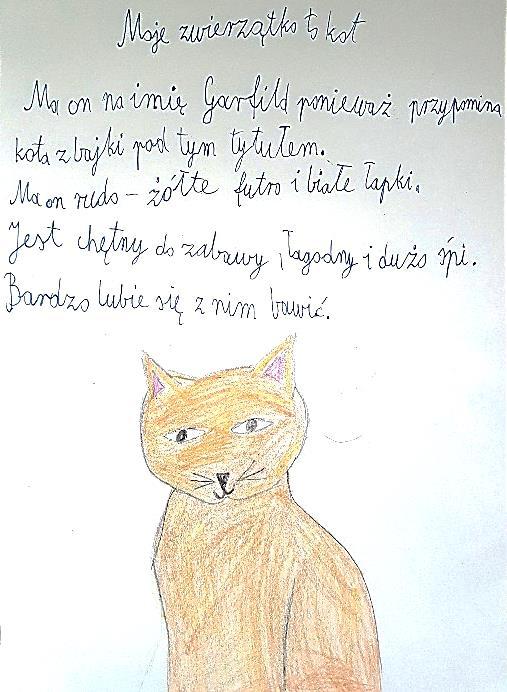 Moje zwierzątko to kot
Ma on na imię Garfild ponieważ przypomina
kota z bajki pod tym tytułem.
Ma on rudo - żółte futro i białe łapki.
Jest chętny do zabawy, łagodny i dużo śpi.
Bardzo lubie się z nim bawić.